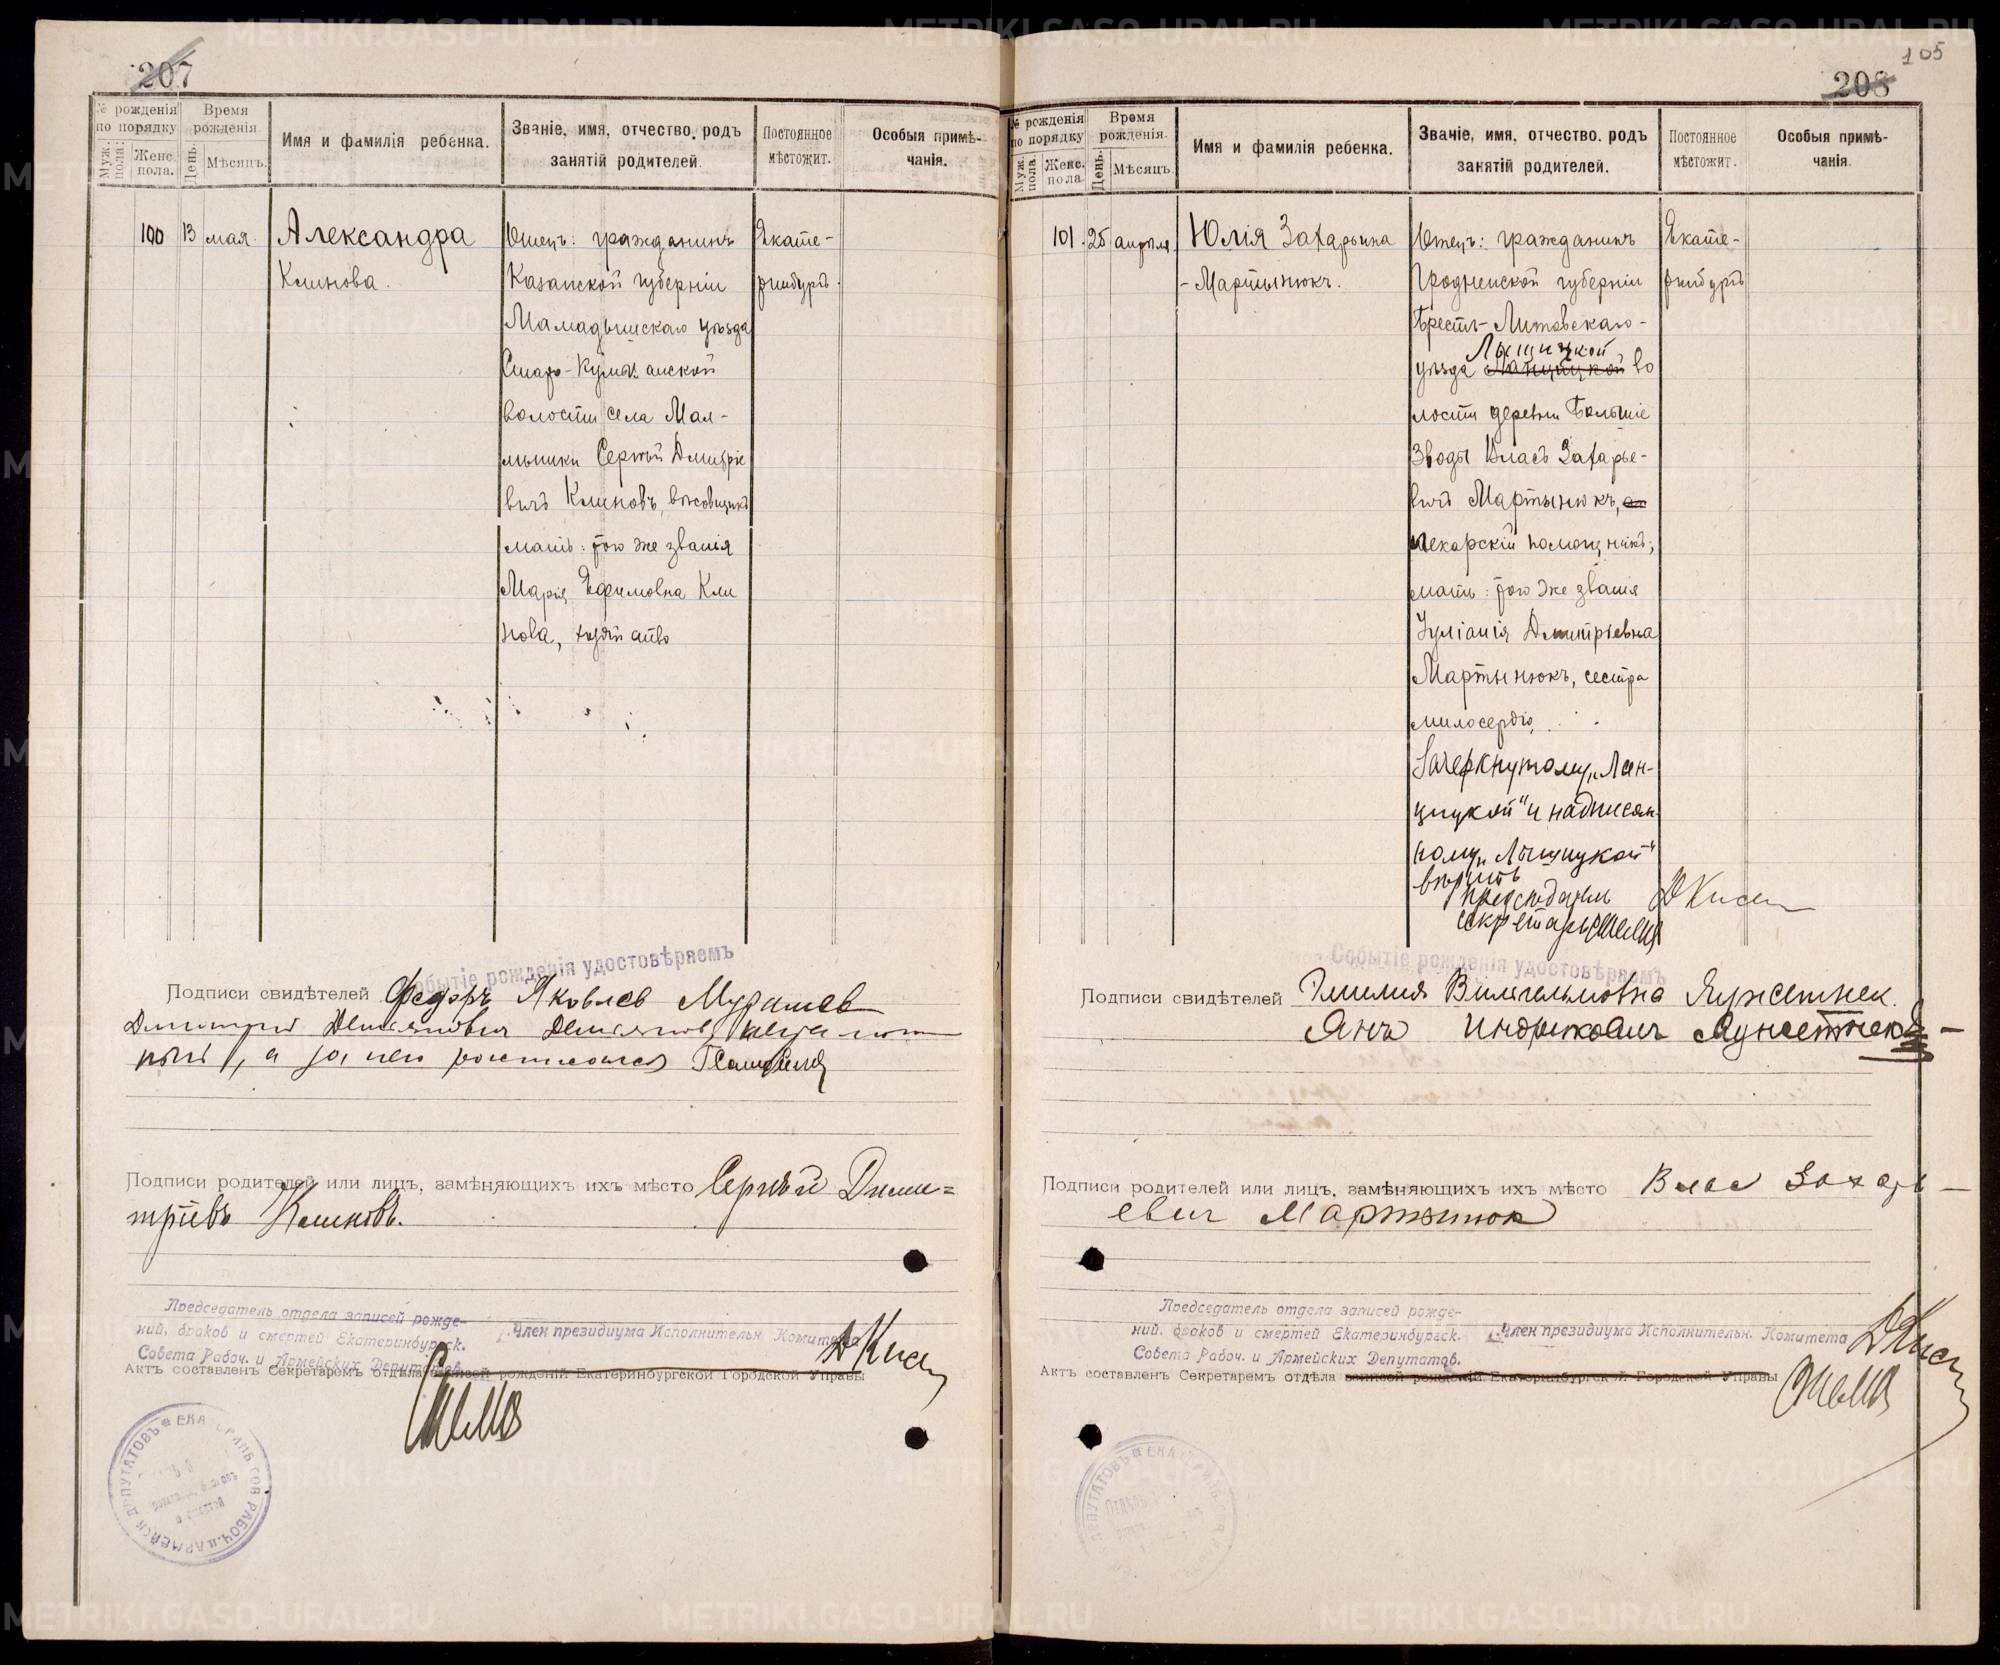 207
№ рожденія по порядку
Муж. пола.
Женс. пола.
Время рожденія.
День.
Мѣсяцъ.
Имя и фамилія ребенка.
Званіе, имя, отчество, родъ
занятій родителей.
Постоянное
мѣстожит.
Особыя примѣ-
чанія.
100 13 мая.
Александра
Клинова.
Отецъ: гражданинъ
Казанской губерніи
Мамадышскаго уѣзда
волости села Мал-
мыжки Сергѣй Дмитріе
вичъ Клиновъ, вѣсовщикъ
мать: того же званія
Марія Ефимовна Кли
нова, хозяйство
Екате-
ринбургъ.
Событіе рожденія удостовѣряемъ
Подписи свидѣтелей Федоръ Яковлев Мурашев
а за него росписался
Подписи родителей или лицъ, замѣняющихъ ихъ мѣсто Сергѣй Дми=
тріевъ Клиновъ.
Председатель отдела записей рожде-
ний, браков и смертей Екатеринбургск.
Совета Рабоч. и Армейских Депутатов.
Член президиума Исполнительн. Комитета
Актъ составленъ Секретаремъ отдѣла записей рожденій Екатеринбургской Городской Управы
208
105
№ рожденія по порядку
Муж. пола.
Женс. пола
Время рожденія.
День.
Мѣсяцъ.
Имя и фамилія ребенка.
Званіе, имя, отчество, родъ
занятій родителей.
Постоянное
мѣстожит.
Особыя примѣ-
чанія.
101. 25 апрѣля.
Юлія Захарьина
- Мартынюкъ.
Отецъ: гражданинъ
Гродненской губерніи
Брестъ-Литовскаго-
Лыщицкой
уѣзда Ланцицкой во
лости деревни Большіе
Зводы Власъ Захарье-
вичъ Мартынюкъ,
лекарскій помощникъ;
мать: того же званія
Іуліанія Дмитріевна
Мартынюкъ, сестра
милосердія.
Зачеркнутому „Лан-
цицкой" и надписан-
ному „Лыщицкой"
вѣрить
Председатель
секретарь
Екате-
ринбургъ
Событіе рожденія удостовѣряемъ
Подписи свидѣтелей Эмилия Вильгельмовна Яунсетнек.
Янъ Индриковичъ Яунсетнекъ
Подписи родителей или лицъ, замѣняющихъ ихъ мѣсто Влас Захарь-
евич Мартынюк
Председатель отдела записей рожде-
ний, браков и смертей Екатеринбургск.
Совета Рабоч. и Армейских Депутатов.
Член президиума Исполнительн. Комитета
Актъ составленъ Секретаремъ отдѣла записей рожденій Екатеринбургской Городской Управы
METRIKI.GASO-URAL.RU